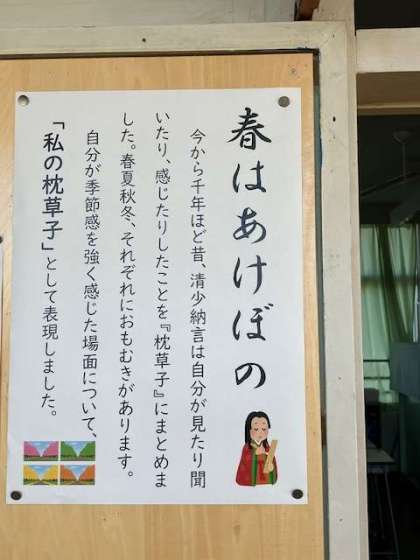 春はあけぼの
今から千年ほど昔、清少納言は自分が見たり聞
いたり、感じたりしたことを『枕草子』にまとめま
した。春夏秋冬、それぞれにおもむきがあります。
自分が季節感を強く感じた場面について、
「私の枕草子」として表現しました。